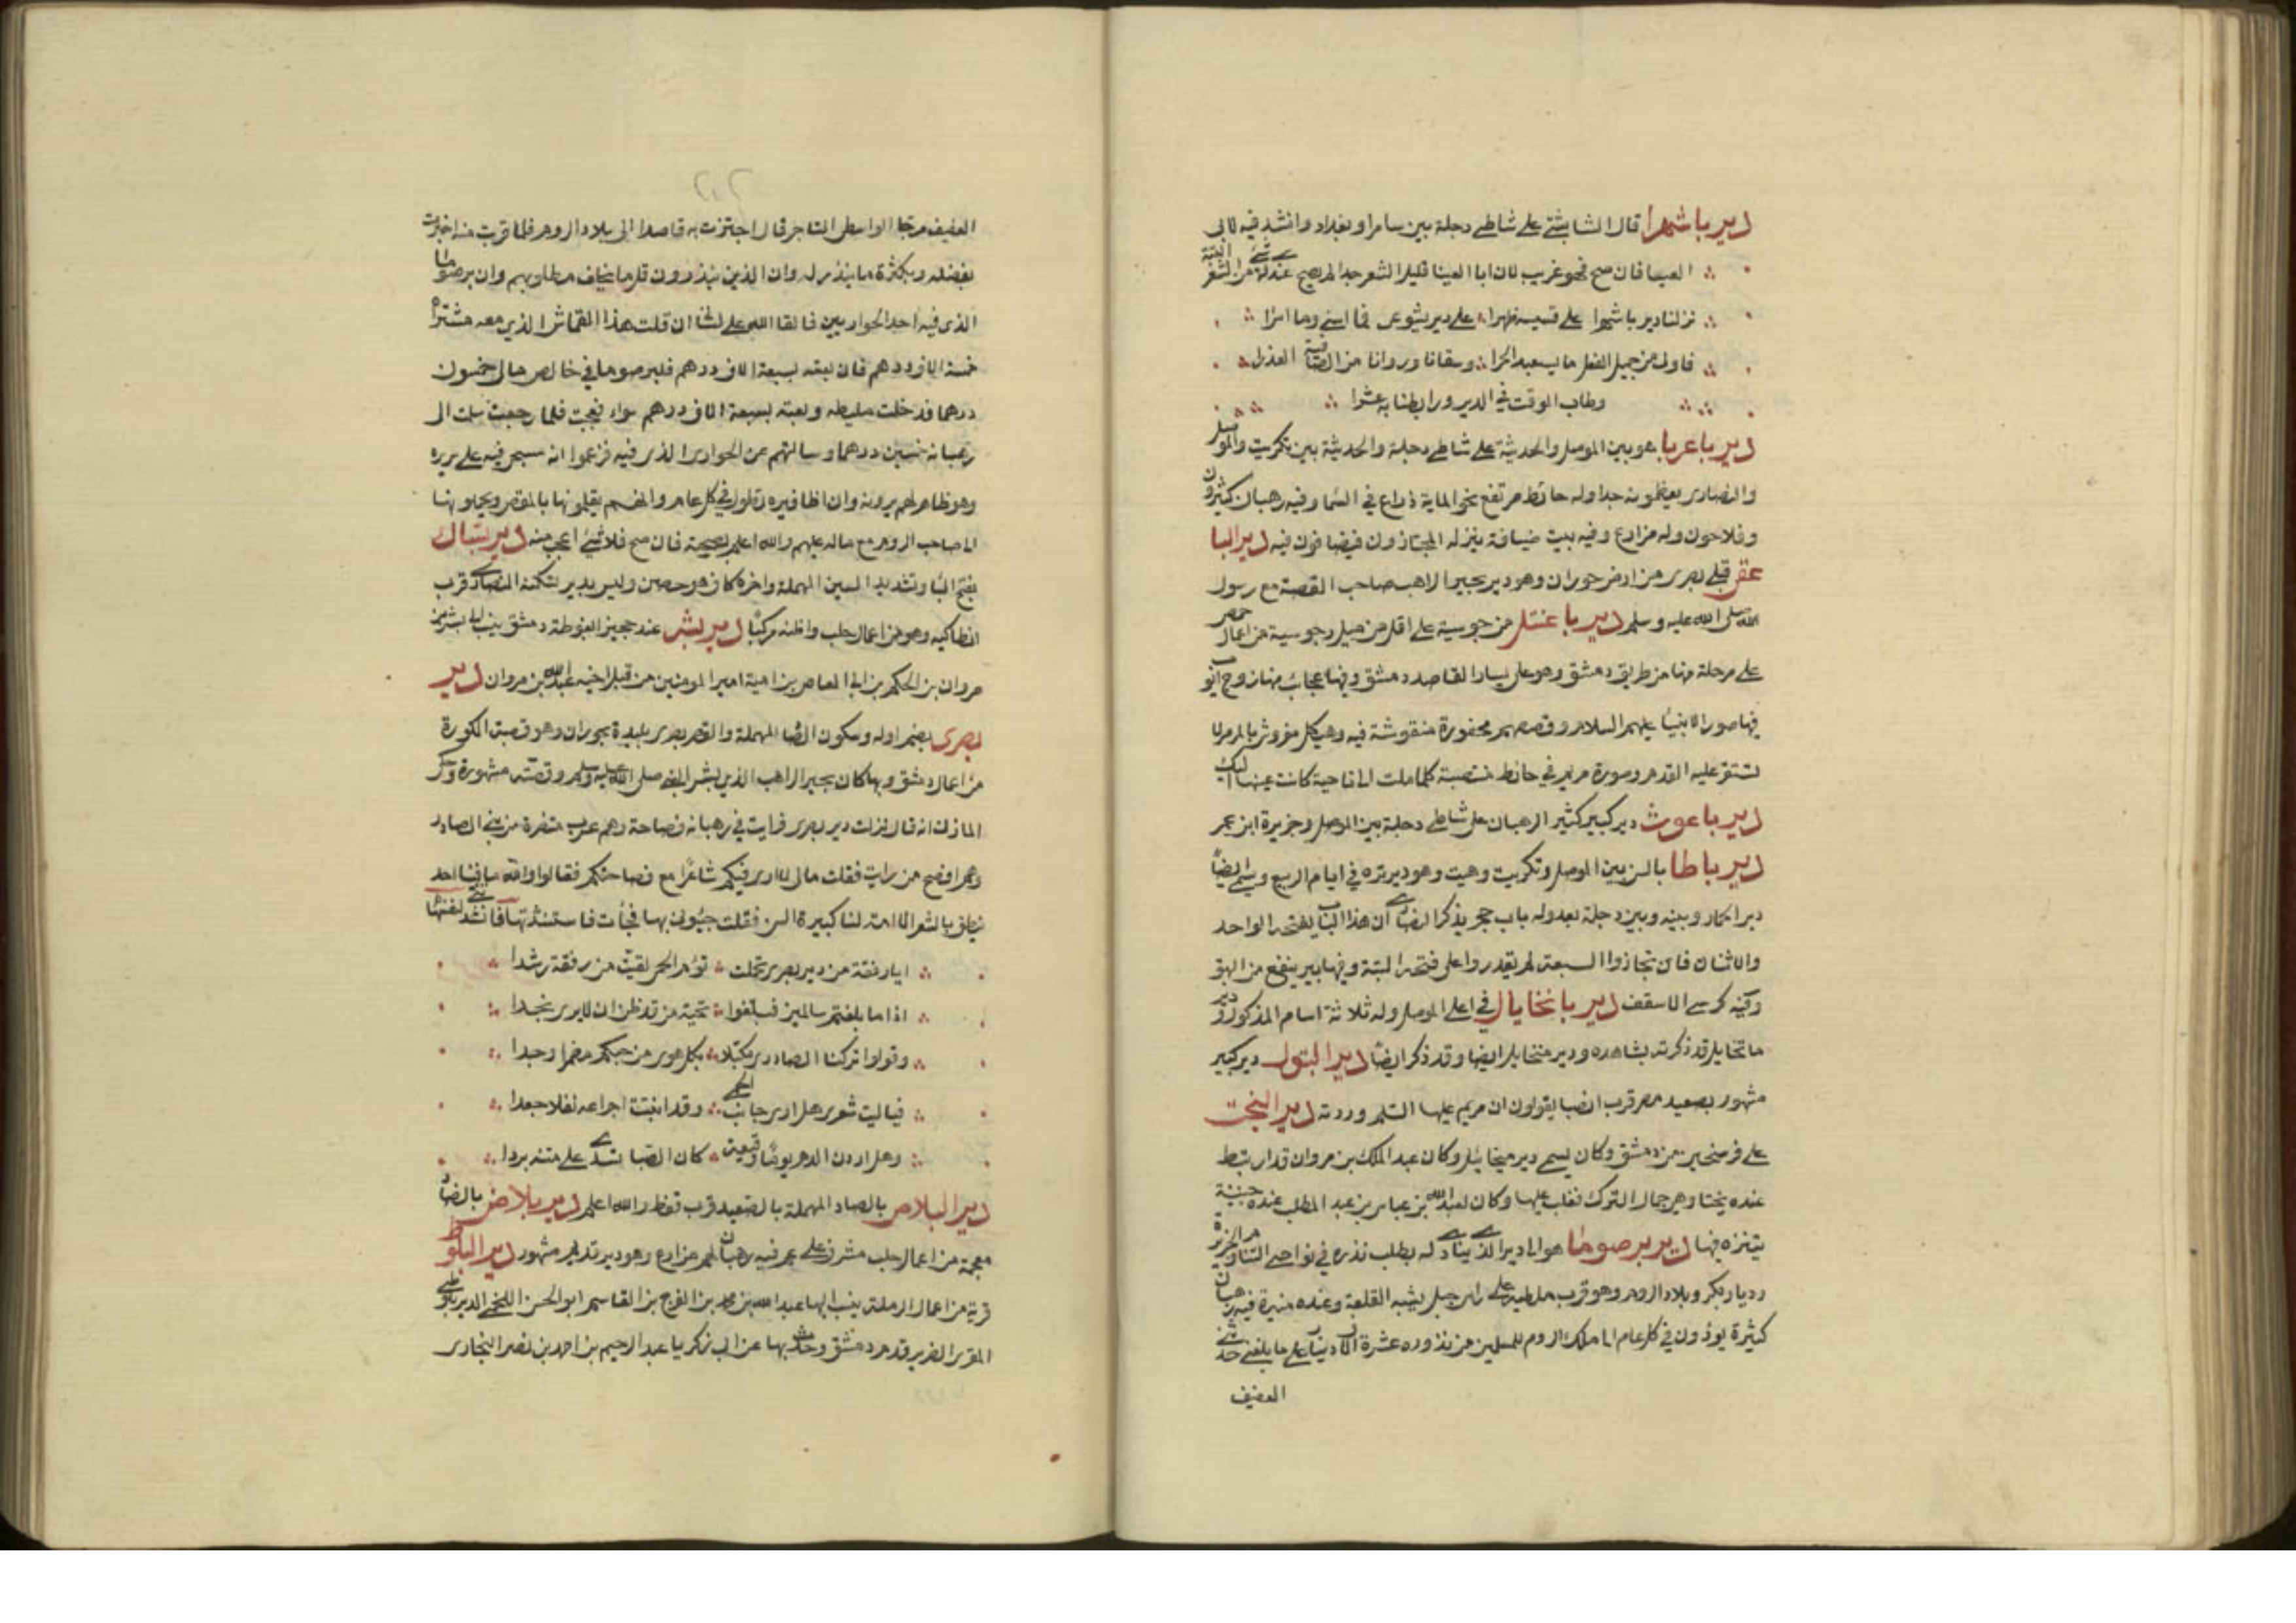 دير باشهرا قال الشابشتي على شاطئ دجلة بين سامرا وبغداد وانشد فيه لابي
العينا فان صح فهو غريب لان ابا العينا قليل الشعر جدا لم يصح عندي له شئ من الشعر البتة
نزلنا دير باشهرا على قسيسه ظهرا على دير يشوعي فما اسنى وما امرا
فاولى من جميل الفعل ما يستعبد الحرا وسقانا وروانا من الصافية العذرا
وطاب الوقت في الدير ورابطنا به عشرا
دير باعربا هو بين الموصل والحديثة على شاطئ دجلة والحديثة بين تكريت والموصل
والنصارى يعظمونه جدا وله حائط مرتفع نحو الماية ذراع في السما وفيه رهبان كثيرون
وفلاحون وله مزارع وفيه بيت ضيافة ينزله المجتازون فيضافون فيه دير البا
عقى قبلي بصرى من ارض حوران وهو دير بحيرا الراهب صاحب القصة مع رسول
الله صلى الله عليه وسلم دير باعنتل من جوسية على اقل من ميل وجوسية من اعمال حمص
على مرحلة منها من طريق دمشق وهو على يسار القاصد دمشق وفيها عجائب منها ازج ابواب
فيها صور الانبيا عليهم السلام وقصصهم محفورة منقوشة فيه وهيكل مفروش بالمرمر لا
تستقر عليه القدم وصورة مريم في حائط منتصبة كلما ملت الى ناحية كانت عينها اليك
دير باعوث دير كبير كثير الرهبان على شاطئ دجلة بين الموصل وجزيرة ابن عمر
دير باطا بالسن بين الموصل وتكريت وهيت وهو دير نزه في ايام الربيع ويسمى ايضا
دير الحمار وبينه وبين دجلة بعد وله باب حجر يذكر النصارى ان هذا الباب يفتحه الواحد
والاثنان فان تجاوزوا السبعة لم يقدروا على فتحه البتة وفيها بير ينفع من البهق
وفيه كرسي الاسقف دير بانخايال في اعلى الموصل وله ثلاثة اسام المذكور ودير
مانخايل قد ذكرته بشاهده ودير ميخايل ايضا وقد ذكر ايضا دير البتول دير كبير
مشهور بصعيد مصر قرب انصنا يقولون ان مريم عليها السلم وردته دير البخت
على فرسخين من دمشق وكان يسمى دير ميخائيل وكان عبد الملك بن مروان قد ارتبط
عنده بختا وهي جمال الترك فغلب عليها وكان لعبد الله بن عباس بن عبد المطلب عنده جنينة
يتنزه فيها دير برصوما هو الدير الذي ينادى له بطلب نذره في نواحي الشام والجزيرة
وديار بكر وبلاد الروم وهو قرب ملطية على راس جبل يشبه القلعة وعنده منيرة فيه رهبان
كثيرة يودون في كل عام الى ملك الروم للمسلمين من نذوره عشرة الاف دينار على ما بلغني حدثني
العفيف
العفيف مرجا الواسطي التاجر قال اجتزت به قاصدا الى بلاد الروم فلما قربت منه اخبرت
بفضله وبكثرة ما ينذر له وان الذين ينذرون قل ما يخاف مطلوبهم وان برصوما
الذي فيه احد الحواريين فالقا الله على لساني ان قلت هذا القماش الذي معي مشتراه
خمسة الاف درهم فان بعته بسبعة الاف درهم فلبرصوما في خالص مالي خمسون
درهما فدخلت ملطيه وبعته بسبعة الاف درهم سواء فعجبت فلما رجعت سلمت الى
رهبانه خمسين درهما وسالتهم عن الحواري الذي فيه فزعموا انه مسجى فيه على سريره
وهو ظاهر لهم يرونه وان اظافيره تطول في كل عام وانهم يقلمونها بالمقص ويحملونها
الى صاحب الروم مع ماله عليهم والله اعلم بصحته فان صح فلا شئ اعجب منه دير بساك
بفتح البا وتشديد السين المهملة واخره كاف هو حصن وليس بدير تسكنه النصارى قرب
انطاكيه وهو من اعمال حلب واظنه مركبا دير بشر عند حجيرا بغوطة دمشق ينسب الى بشر بن
مروان بن الحكم بن ابي العاص بن امية امير المومنين من قبل اخيه عبد الله بن مروان دير
بصرى بضم اوله وسكون الصاد المهملة والقصر بصرى بليدة بحوران وهو قصبة الكورة
من اعمال دمشق وبها كان بحيرا الراهب الذي بشر بالنبي صلى الله عليه وسلم وقصته مشهورة وحكى
المازني انه قال نزلت دير بصرى فرايت في رهبانه فصاحة وهم عرب متنصرة من بني الصادر
وهم افصح من رايت فقلت مالي لا ارى فيكم شاعرا مع فصاحتكم فقالوا والله ما فينا احد
ينطق بالشعر الا امة لنا كبيرة السن فقلت جيئوني بها فجأت فاستنشدتها فانشدتني لنفسها
ايا رفقة من دير بصرى تحملت تؤم الحمى لقيت من رفقة رشدا
اذا ما بلغتم سالمين فبلغوا تحية من قد ظن ان لا يرى نجدا
وقولوا تركنا الصادري مكبلا بكل هوى من حبكم مضمرا وجدا
فيا ليت شعري هل ارى جانب الحمى وقد انبتت اجراعه نفلا جعدا
وهل اردن الدهر يوما وقيعه كان الصبا تسدي على متنه بردا
دير البلاص بالصاد المهملة بالصعيد قرب قفط والله اعلم دير بلاض بالضاد
معجمة من اعمال حلب مشرف على عم فيه رهبان لهم مزارع وهو دير قديم مشهور دير البلوط
قرية من اعمال الرملة ينسب اليها عبد الله بن محمد بن الفرج بن القاسم ابو الحسن اللخمي الدير بلوطي
المقري الضرير قدم دمشق وحدث بها عن ابي زكريا عبد الرحيم بن احمد بن نصر البخاري